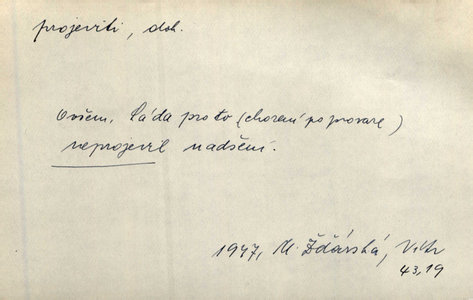 projeviti, dok.
Ovšem, Láda pro to (chození po provaze)
neprojevil nadšení.
1947, M. Žďárská, Vítr
43,19